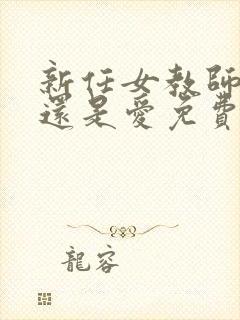 新任女教師
還是愛免費
龍容